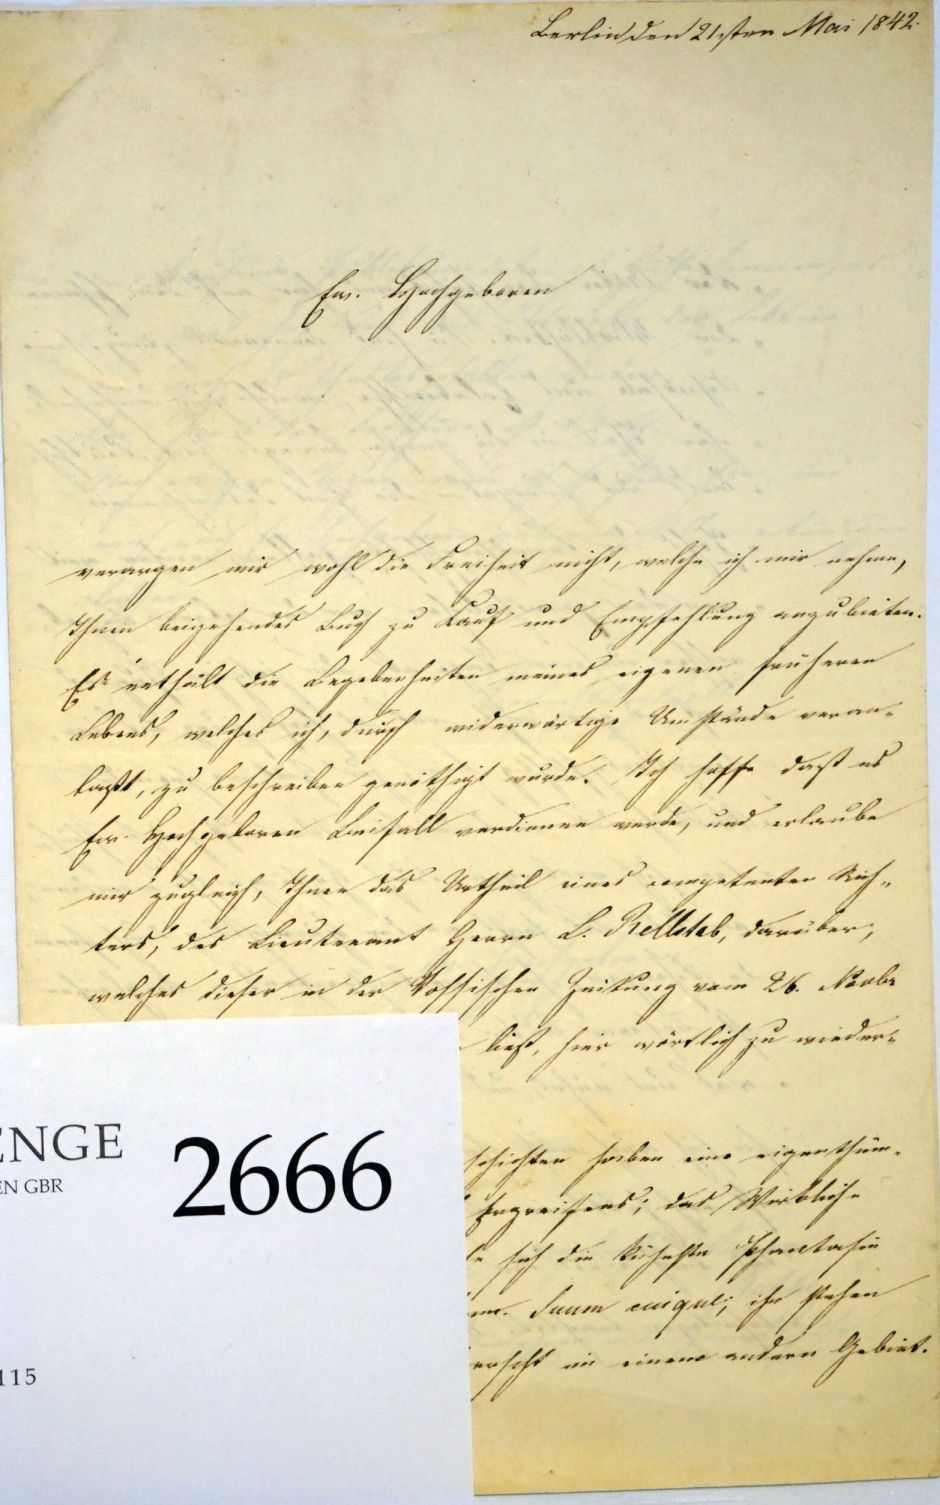 Berlin den 21sten Mai 1842.
Ew. Hochgeboren
verargen mir wohl die Freiheit nicht, welche ich mir nehme,
Ihnen beigehendes Buch zu Kauf und Empfehlung anzubieten.
Es enthält die Begebenheiten meines eigenen früheren
Lebens, welches ich, durch widerwärtige Umstände veran-
laßt, zu beschreiben genöthigt wurde. Ich hoffe daß es
Ew. Hochgeboren Beifall verdienen werde, und erlaube
mir zugleich, Ihnen das Urtheil eines competenten Rich-
ters, des Lieutenant Herrn L. Rellstab, darüber,
welches dieser in der Vossischen Zeitung vom 26. Novbr
ließ, hier wörtlich zu wieder-
schichten haben eine eigenthüm-
Ergreifens; das Wirkliche
sich die kühnste Phantasie
Suum cuique; ihr stehen
rscht in einem andern Gebiet.
ENGE
EN GBR
2666
115